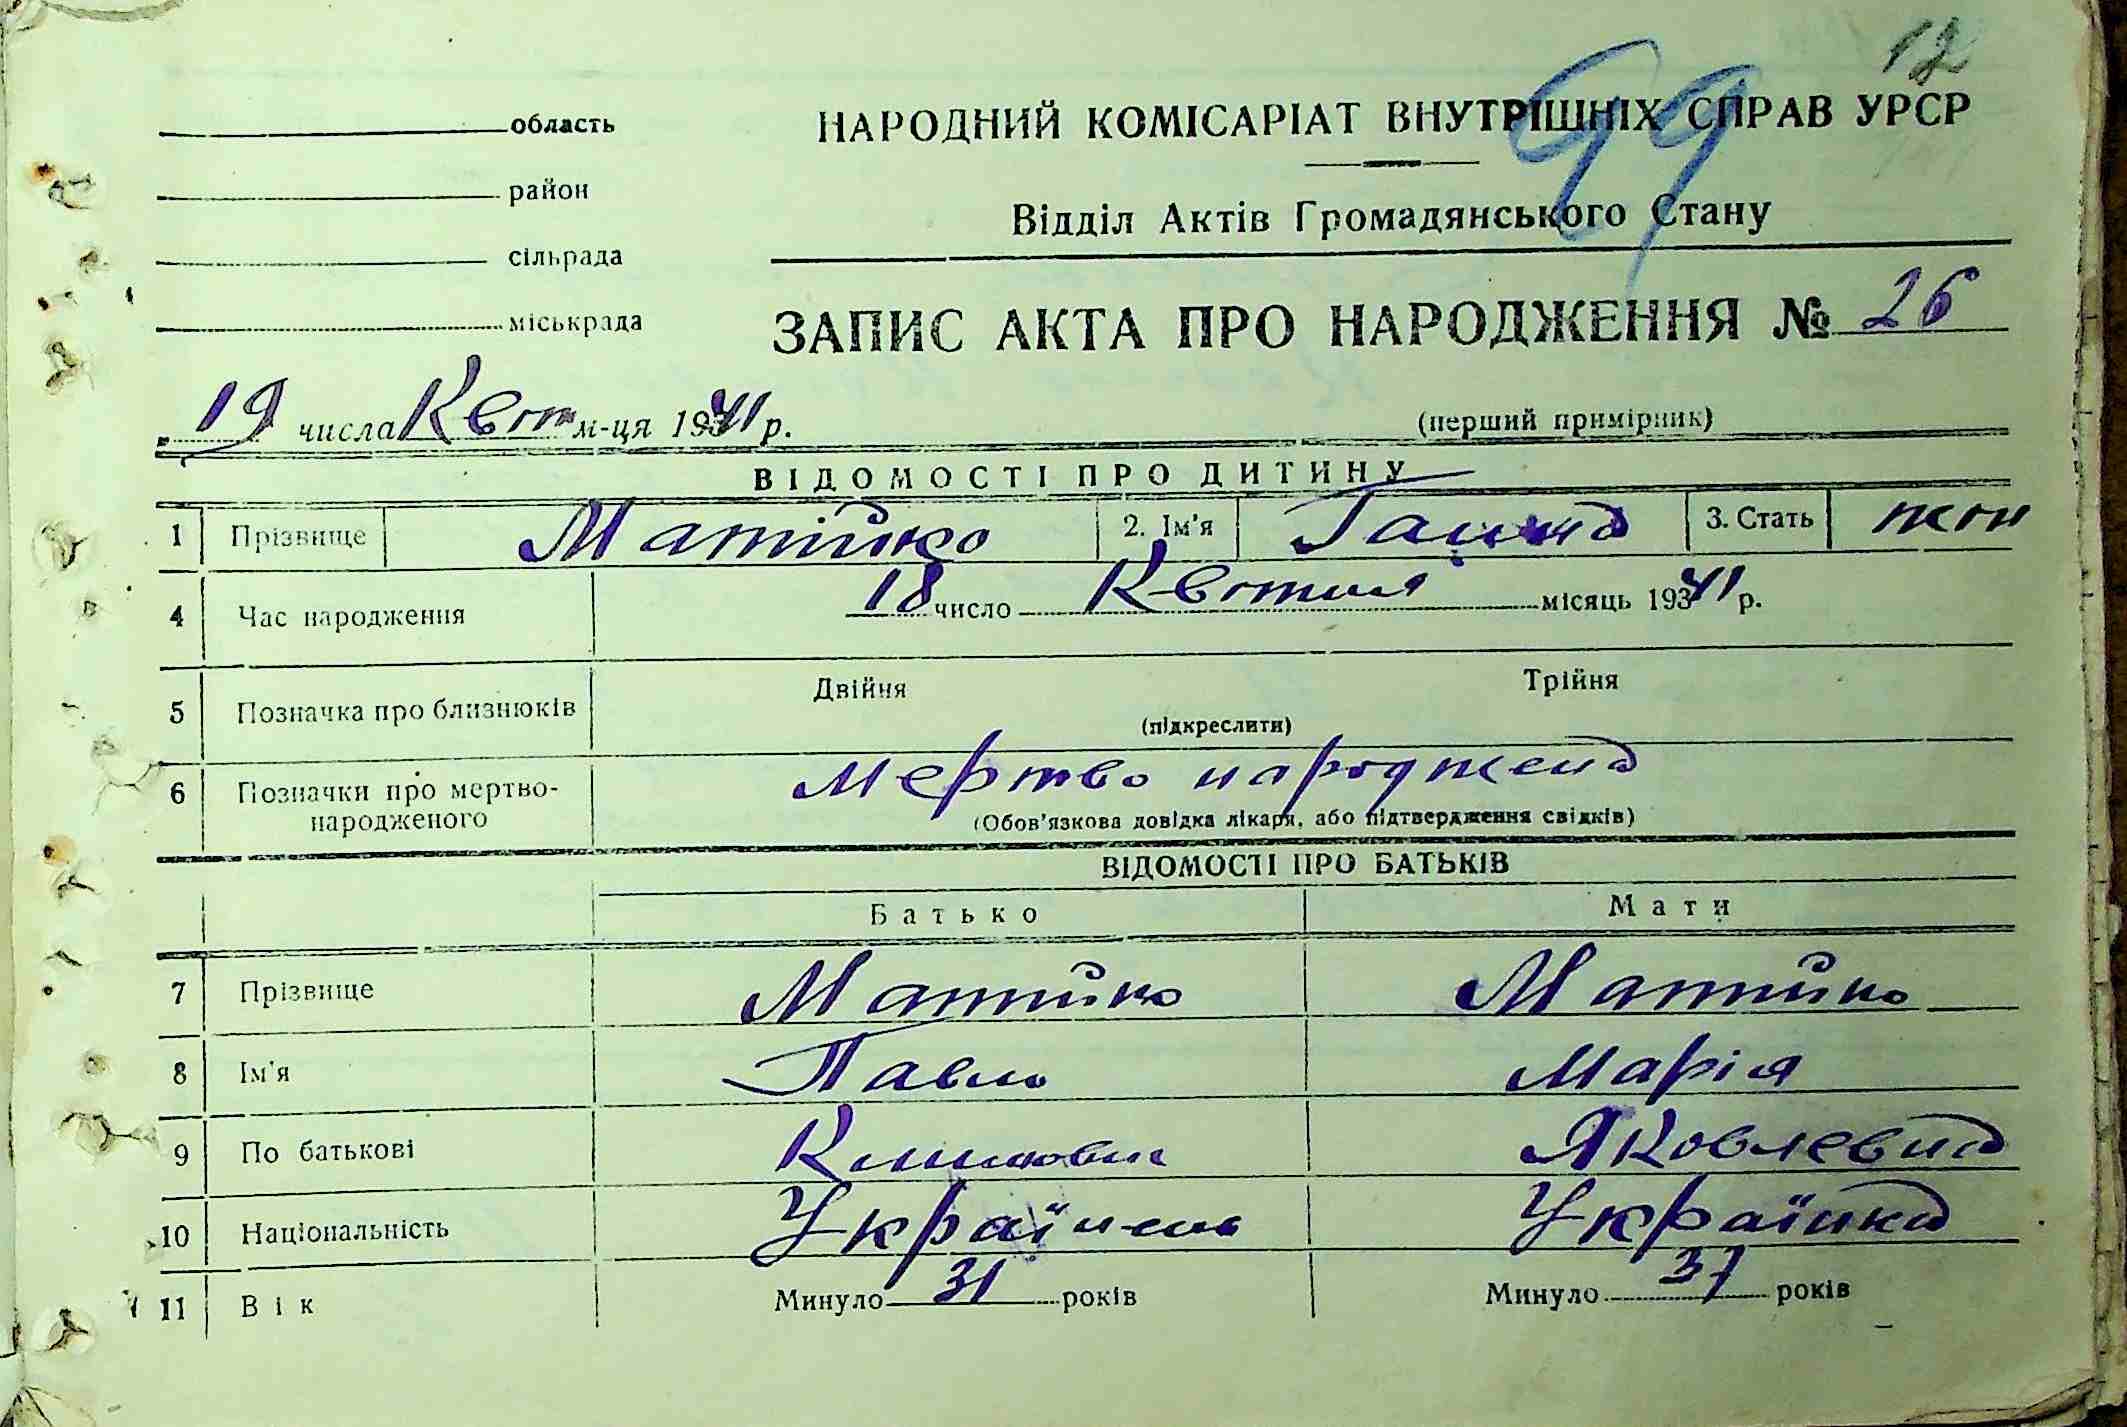 12
99
область
район
сільрада
міськрада
НАРОДНИЙ КОМІСАРІАТ ВНУТРІШНІХ СПРАВ УРСР
Відділ Актів Громадянського Стану
ЗАПИС АКТА ПРО НАРОДЖЕННЯ № 26
19 числа Квітня м-ця 1941 р. (перший примірник)
ВІДОМОСТІ ПРО ДИТИНУ
1 Прізвище Матійко 2. Ім'я Ганна 3. Стать жін
4 Час народження 18 число Квітня місяць 1941 р.
5 Позначка про близнюків Двійня Трійня
(підкреслити)
6 Позначки про мертво-народженого Мертво народжена
(Обов'язкова довідка лікаря, або підтвердження свідків)
ВІДОМОСТІ ПРО БАТЬКІВ
Батько Мати
7 Прізвище Матійко Матійко
8 Ім'я Павло Марія
9 По батькові Яковлевна
10 Національність Українець Українка
11 Вік Минуло 31 років Минуло 37 років